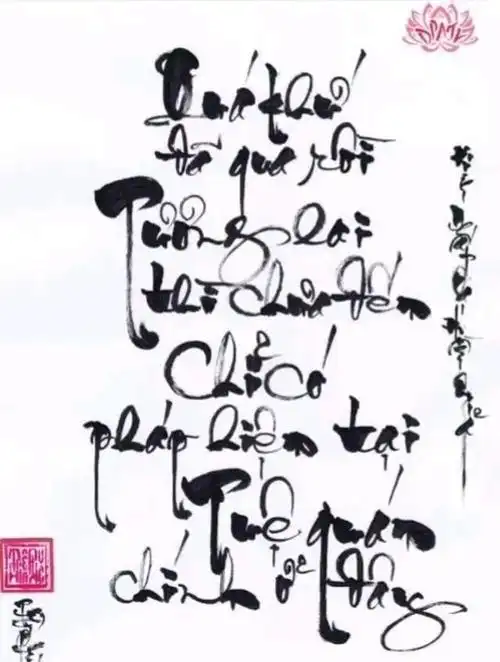 Quá khứ
đã qua rồi
Tương lai
thì chưa đến
Chỉ có
pháp hiện tại
Tuệ quán
chính ở đây